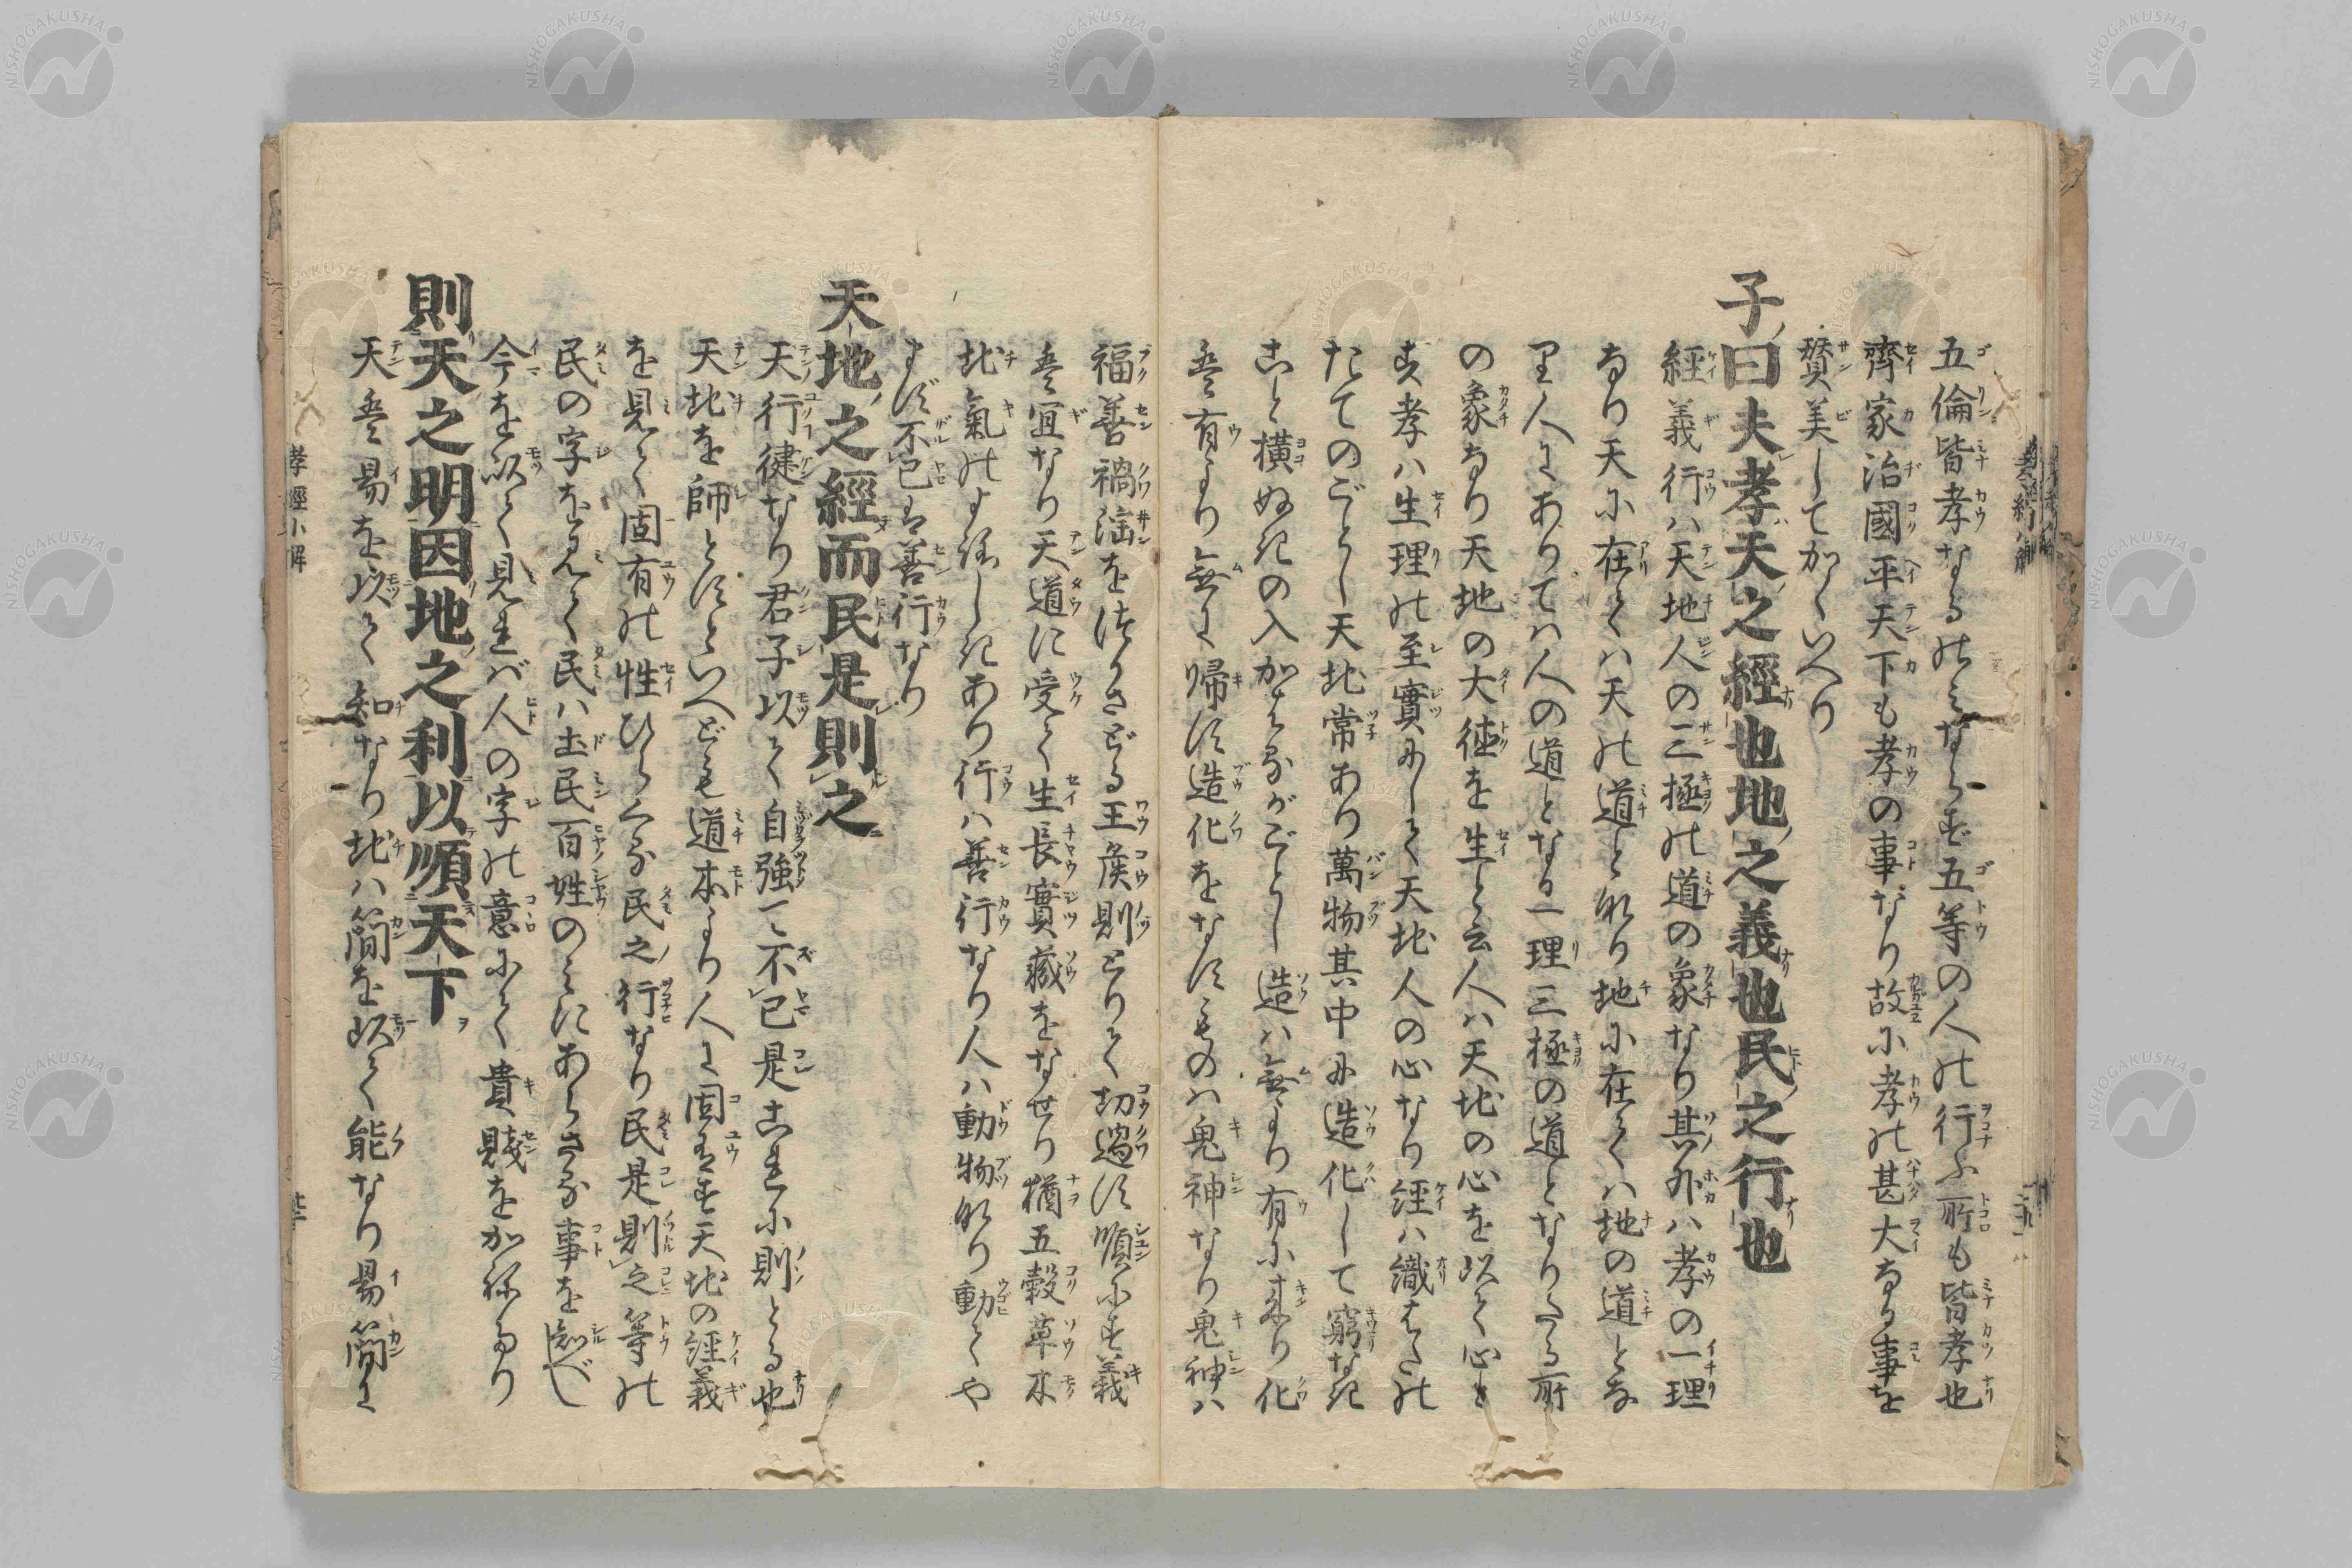 五倫皆孝なるのみならず五等の人の行ふ所も皆孝也
齊家治國平天下も孝の事なり故に孝の甚大なる事を
賛美してかくいへり
子曰夫孝天之經也地之義也民之行也
經義行ハ天地人の三極の道の象なり其外ハ孝の一理
なり天に在てハ天の道と成り地に在てハ地の道とな
り人にありてハ人の道となる一理三極の道となりたる所
の象なり天地の大德を生と云人ハ天地の心を以て心と
す孝ハ生理の至實にして天地人の心なり經ハ織はたの
たてのごとし天地常あり萬物其中に造化して窮なき
こと横ぬきの入かはるがごとし造ハ無より有に來り化
ハ有より無に歸す造化をなすものハ鬼神なり鬼神ハ
福善禍淫をつかさどる王侯則とりて功過す順にす義
ハ宜なり天道に受て生長實藏をなせり猶五穀草木
地氣のよろしきあり行ハ善行なり人ハ動物なり動てや
まず不已ハ善行なり
天地之經而民是則之
天行健なり君子以て自強して不已是これに則とる也
天地を師とすといへども道本より人に固有す天地の經義
を見て固有の性ひらくる民之行なり民是則之等の
民の字を見て民ハ土民百姓のみにあらざる事を知べし
今を以て見れバ人の字の意にて貴賤をかねたり
則天之明因地之利以順天下
天ハ易を以て知なり地ハ簡を以て能なり易簡に
孝經小解